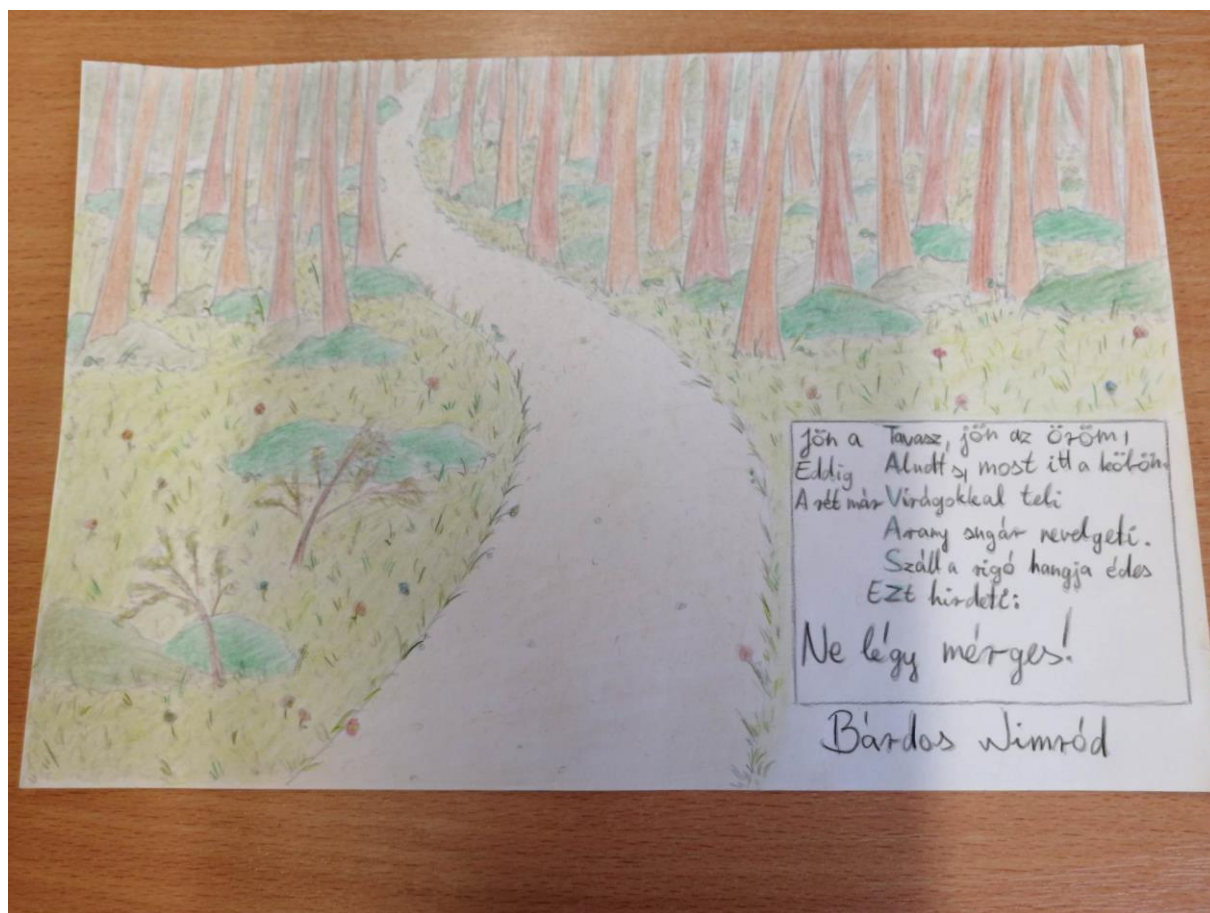 Jön a Tavasz, jön az öröm,
Eddig Aludt s, most itt a körön.
A rét már Virágokkal teli
Arany sugár nevelgeti.
Száll a rigó hangja édes
EZt hirdeti:
Ne légy mérges!
Bárdos Nimród